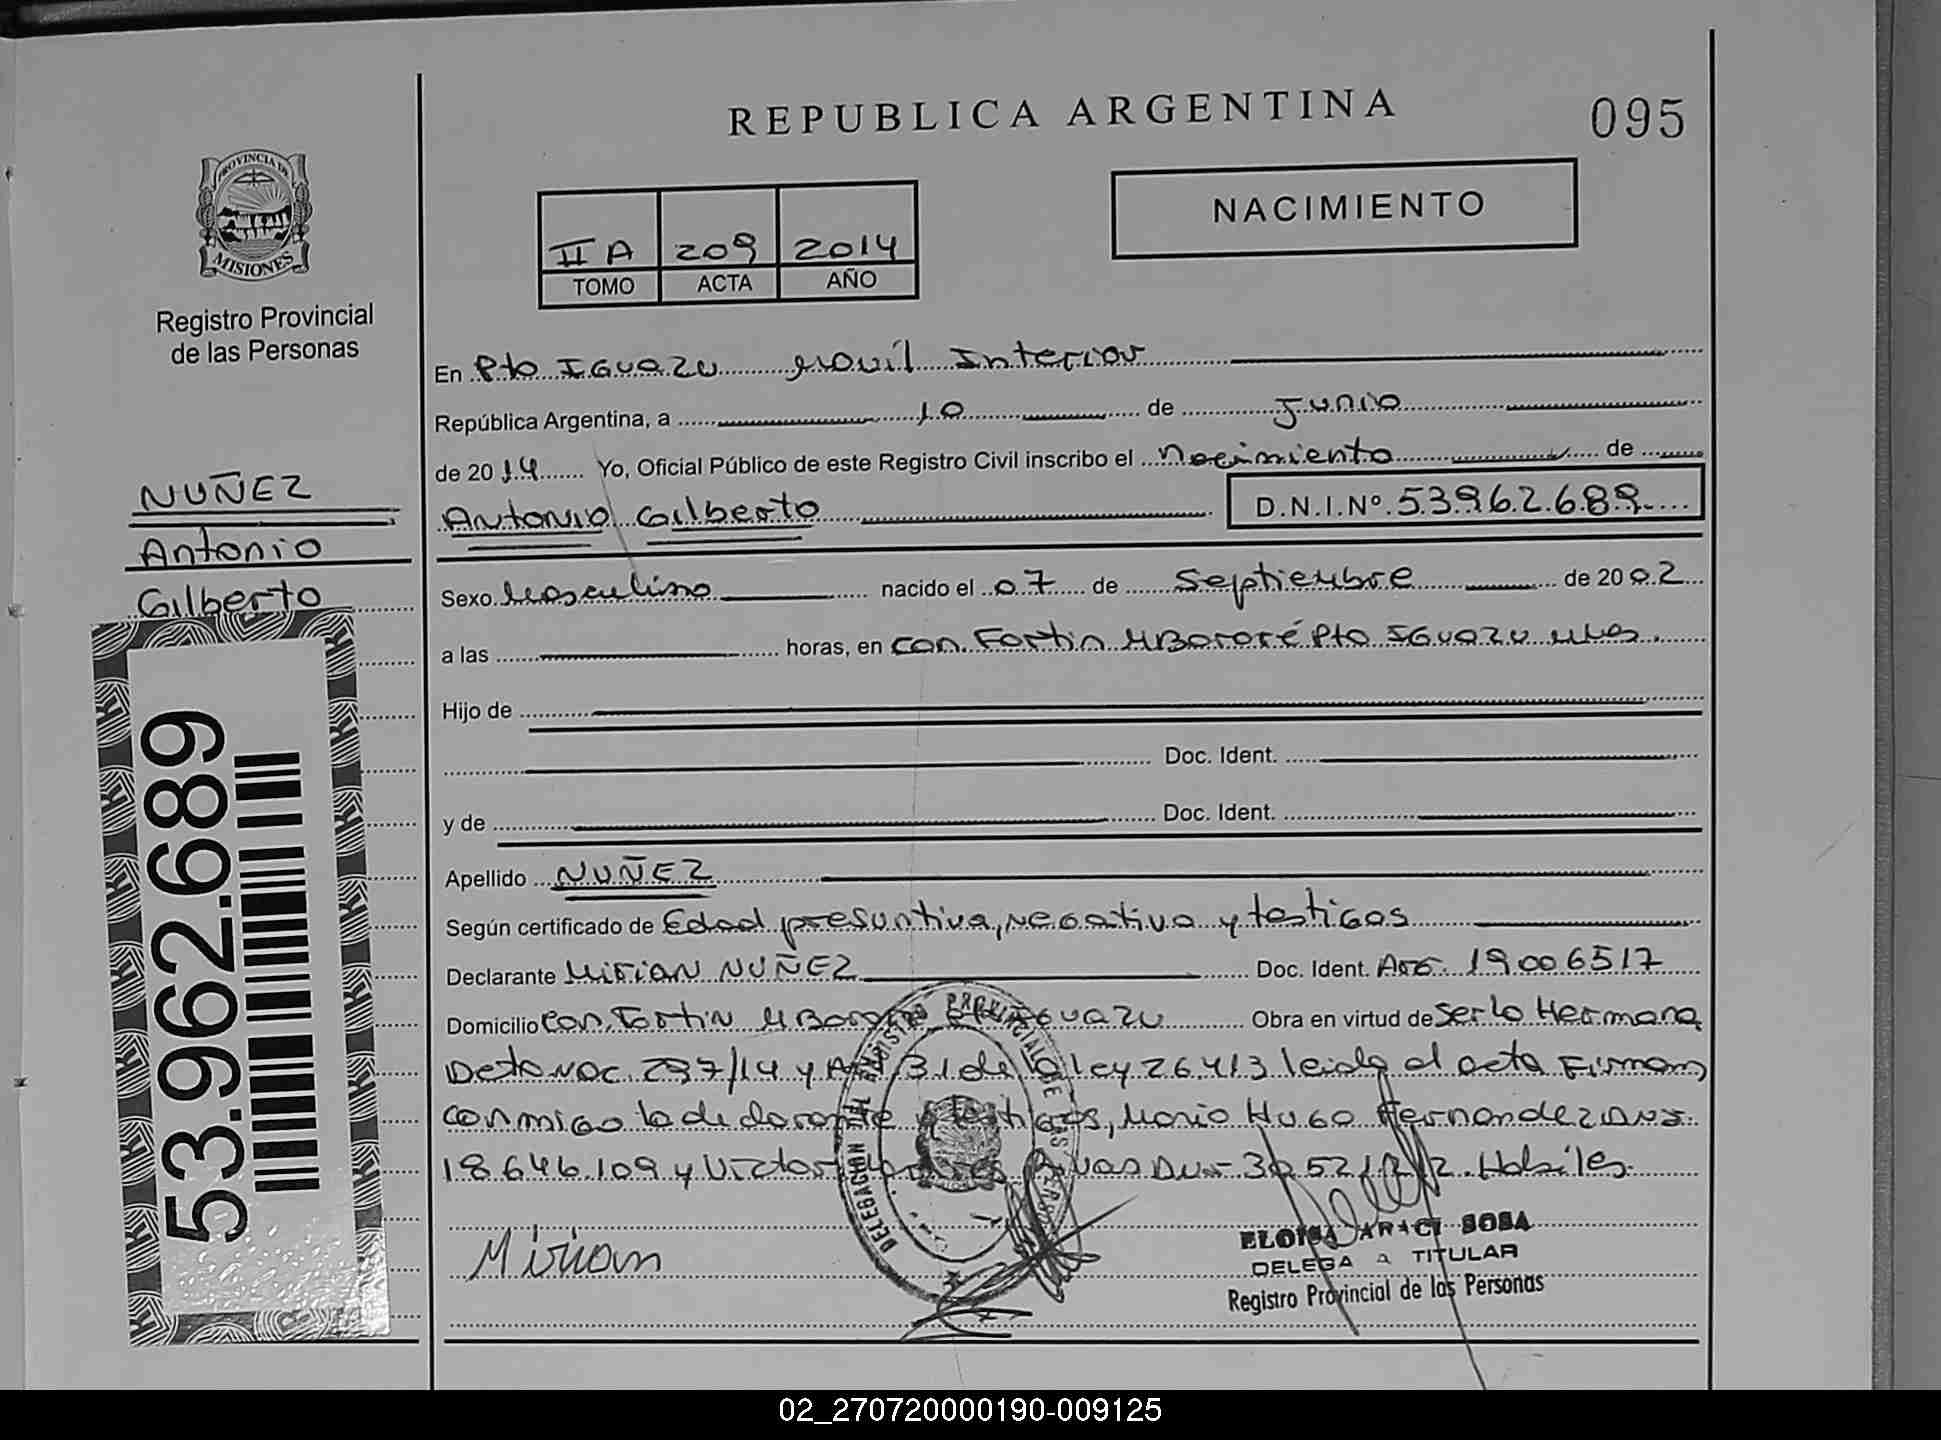 REPUBLICA ARGENTINA
095
PROVINCIA DE
MISIONES
Registro Provincial
de las Personas
NACIMIENTO
II A 209 2014
TOMO ACTA AÑO
En Pto IGUAZU Movil Interior
República Argentina, a 10 de Junio
de 2014 Yo, Oficial Público de este Registro Civil inscribo el Nacimiento de
Antonio Gilberto D.N.I.Nº 53962.689
NUÑEZ
Antonio
Gilberto
53.962.689
Sexo Masculino nacido el 07 de Septiembre de 2002
a las horas, en Con. Fortin MBororé Pto IGUAZU Mnes.
Hijo de
Doc. Ident.
y de Doc. Ident.
Apellido NUÑEZ
Según certificado de Edad presuntiva, negativa y testigos
Declarante Mirian NUÑEZ Doc. Ident. Arg. 19006517
Domicilio Con. Fortin IGUAZU Obra en virtud de Ser la Hermana
Deto Noc. 297/14 y Art 31 de la ley 26.413 leida el acta Firman
conmigo la declarante y testigos, Mario Hugo Fernandez
18.646.109 y Victor Habiles.
Mirian
DELEGACION
REGISTRO PROVINCIAL DE LAS PERSONAS
ELOISA ARACI SOSA
DELEGADA TITULAR
Registro Provincial de las Personas
02_270720000190-009125